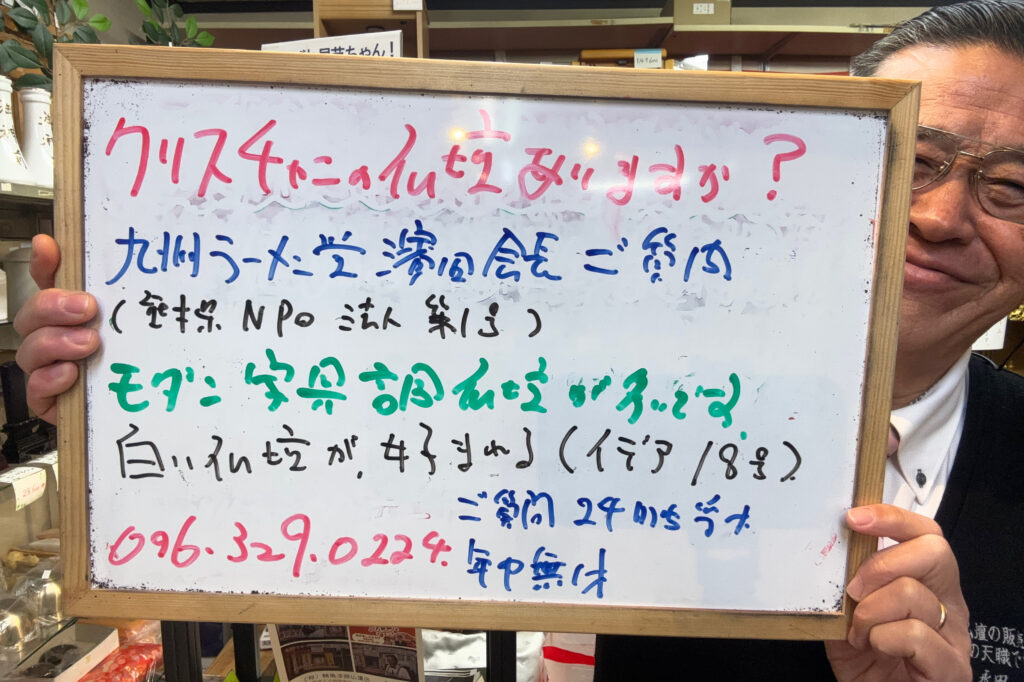 クリスチャンの仏壇ありますか?
九州ラーメン党 濱田会長 ご質問
(熊本県 NPO 法人 第1号)
モダン家具調仏壇が多いです
白い仏壇が、好まれる(イデア18号)
ご質問 24から
096.329.0224
年中無休
仏壇の販
の天職で
永田